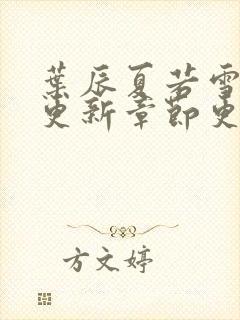 葉辰夏若雪
更新章節更
方文婷